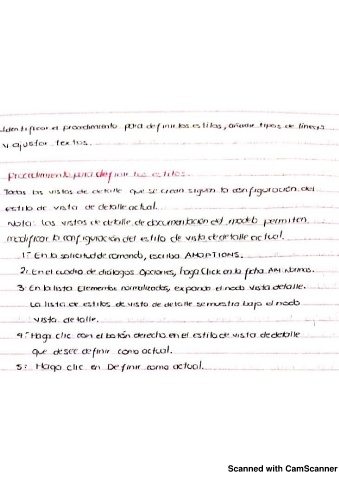 Identificar el procedimiento para definir los estilos, añadir tipos de líneas
y ajustar textos.
Procedimiento para definir los estilos.
Todas las vistas de detalle que se crean siguen la configuración del
estilo de vista de detalle actual.
Nota: las vistas de detalle de documentación del modelo permiten
modificar la configuración del estilo de vista de detalle actual.
1: En la solicitud de comando, escriba AMOPTIONS.
2: En el cuadro de dialogos Opciones, haga Click en la ficha AM:Normas.
3: En la lista Elementos normalizados, expanda el nodo vista detalle.
La lista de estilos de vista de detalle se muestra bajo el nodo
vista detalle.
4: Haga clic con el botón derecho en el estilo de vista de detalle
que desee definir como actual.
5: Haga clic en Definir como actual.
Scanned with CamScanner